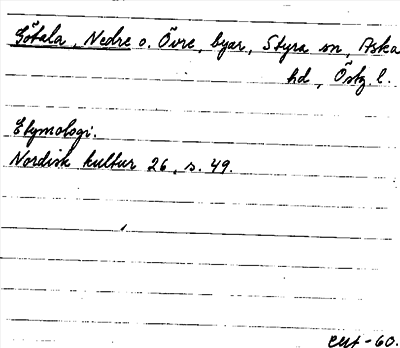 Götala, Nedre o. Övre, byar, Styra sn, Aska
hd, Östg. l.
Etymologi.
Nordisk kultur 26, s. 49.